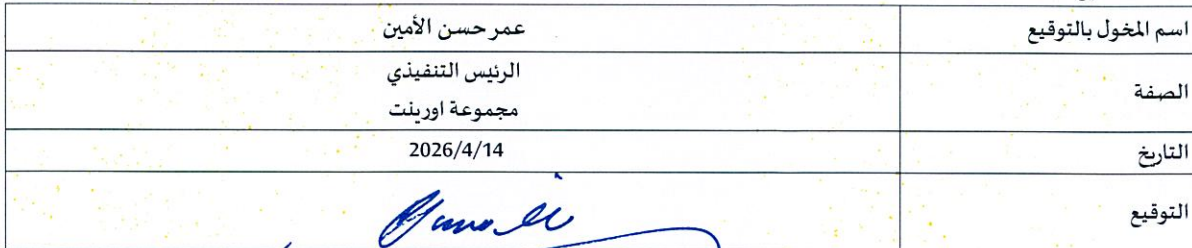 اسم المخول بالتوقيع عمر حسن الأمين
الصفة الرئيس التنفيذي
مجموعة اورينت
التاريخ 2026/4/14
التوقيع